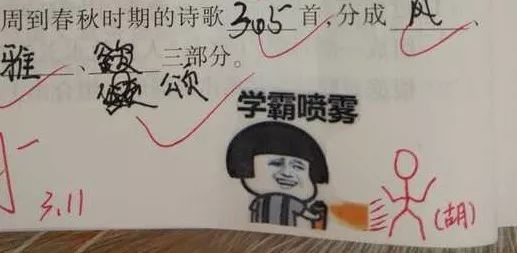 周到春秋时期的诗歌 305 首,分成 风 、
雅 、 颂 三部分。
学霸喷雾
3.11
(胡)